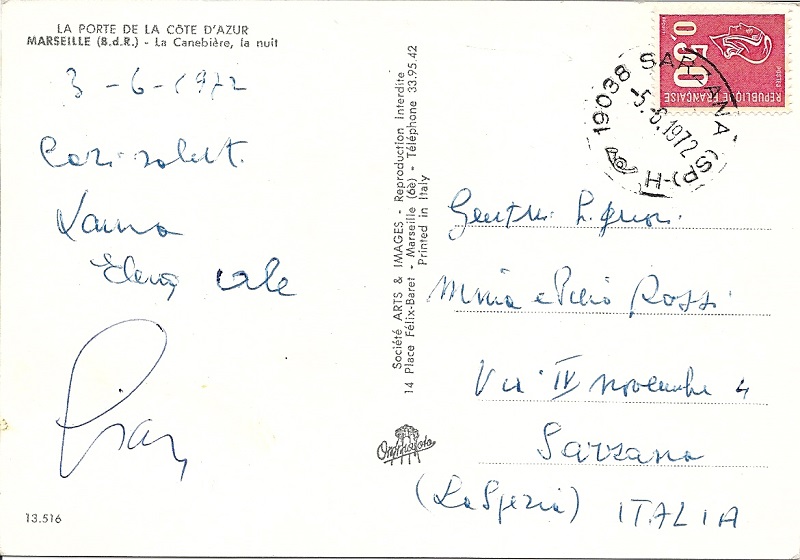 LA PORTE DE LA CÔTE D'AZUR
MARSEILLE (B.d.R.) - La Canebière, la nuit
3 - 6 - 1972
Cari saluti.
Laura
Elena
13.516
Société ARTS & IMAGES - Reproduction Interdite
14 Place Félix-Baret - Marseille (6è) - Téléphone 33.95.42
Printed in Italy
0,50
POSTES
REPUBLIQUE FRANÇAISE
19038 SARZANA (SP)-H
-5.6.1972
Gentili Signori
e Piero Rossi
Via IV novembre 4
Sarzana
(La Spezia) ITALIA